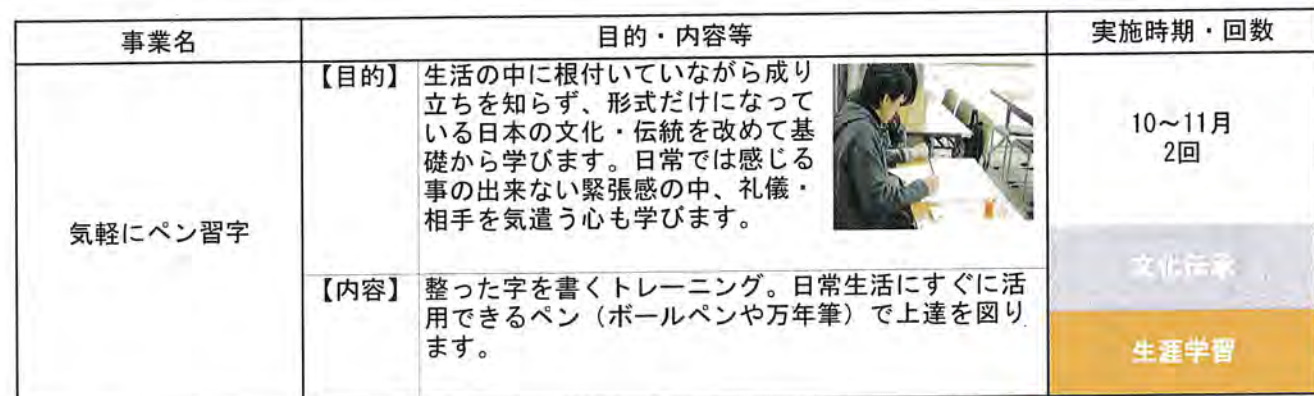 事業名
目的・内容等
実施時期・回数
気軽にペン習字
【目的】 生活の中に根付いていながら成り
立ちを知らず、形式だけになって
いる日本の文化・伝統を改めて基
礎から学びます。日常では感じる
事の出来ない緊張感の中、礼儀・
相手を気遣う心も学びます。
【内容】 整った字を書くトレーニング。日常生活にすぐに活
用できるペン（ボールペンや万年筆）で上達を図り
ます。
10～11月
2回
文化伝承
生涯学習